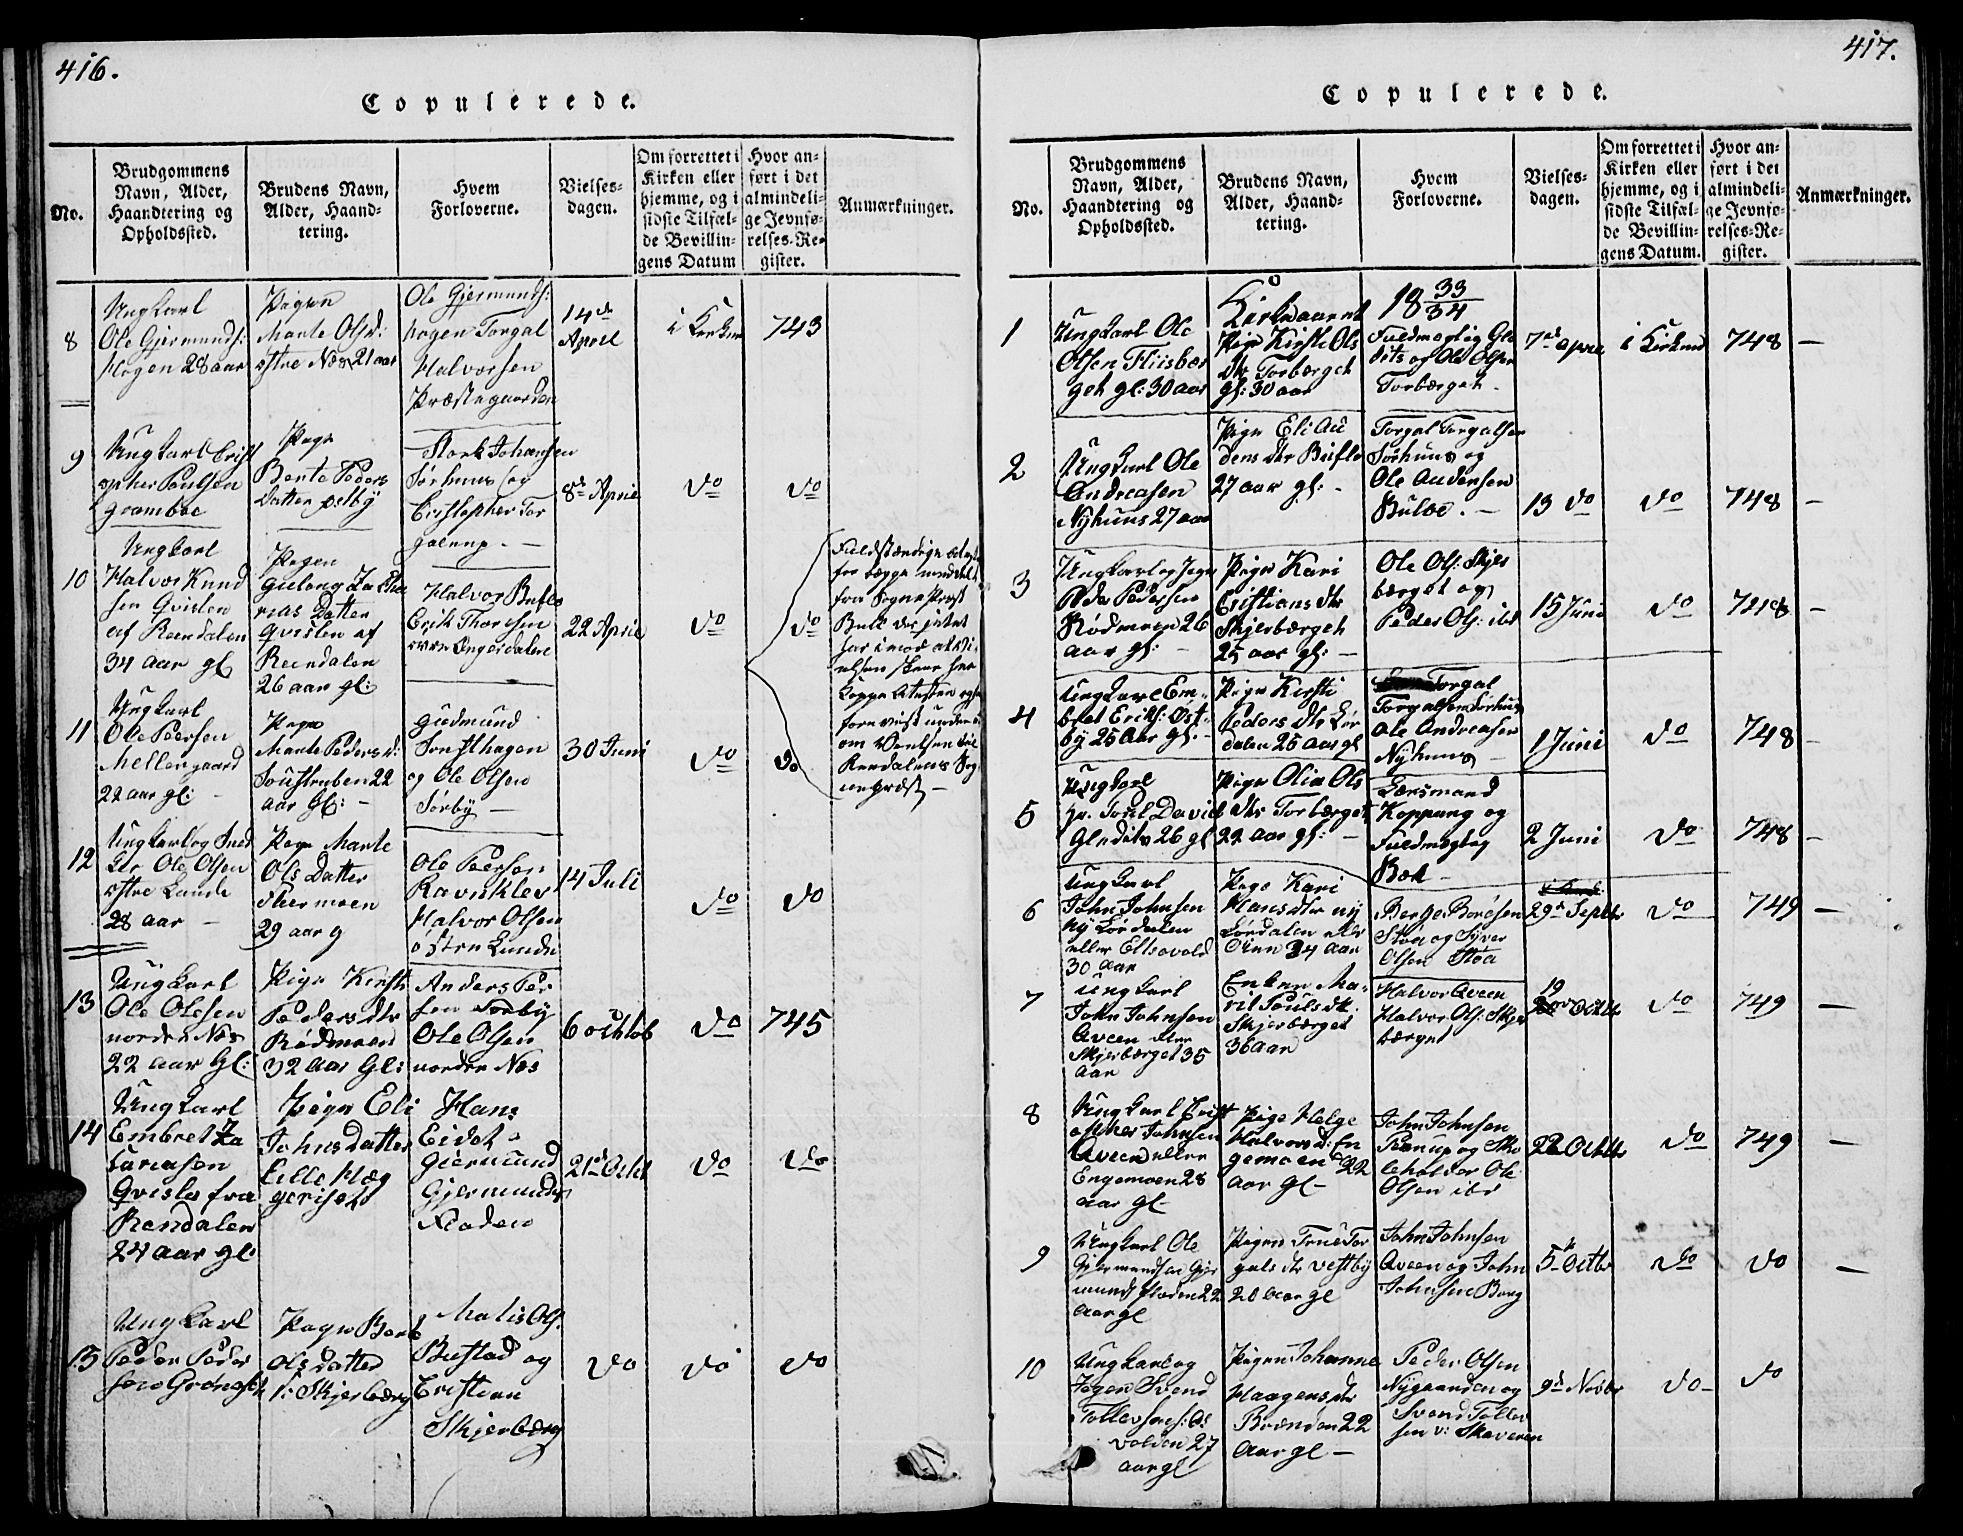 416.
Copulerede.
No.
Brudgommens
Navn, Alder,
Haandtering og
Opholdssted.
Brudens Navn,
Alder, Haand-
tering.
Hvem
Forloverne.
Vielses-
dagen.
Om forrettet i
Kirken eller
hjemme, og i
sidste Tilfæl-
de Bevillin-
gens Datum
Hvor an-
ført i det
almindeli-
ge Jevnfø-
relses-Re-
gister.
Anmærkninger.
8
Ungkarl
Ole Gjermunds:
Hogen 28 aar
Pigen
Marte Olsd:
østre Næs 21 aar
Ole Gjermunds:
hogen Torgal
Halvorsen
Præstegaarden
14de
April
i Kirken
743
9
Ungkarl Crist
opher Poulsen
Gramboe
Pige
Bente Peders
Datter
Stork Johansen
Sørhuus og
Cristopher Tor
8de April
do
do
10
Ungkarl
Halvor Knud
sen Qvislen
af Reendalen
34 aar gl
Pigen
Guleug Zacha
rias Datter
Qvislen af
Reendalen
26 aar gl:
Halvor Buflo
Erik Thoresen
22 April
do
do
Fuldstændige
for begge
for Sogne Præst
11
Ungkarl
Ole Peersen
Mellemgaard
22 aar gl: -
Pige
Marte Peders d:
22
aar gl: -
Gudmund
og Ole Olsen
Sørby -
30 Juni
do
do
12
Ungkarl og
Ole Olsen
østre Lunde
28 aar -
Pige Marte
Ols Datter
Thermoen
29 aar g
Ole Peersen
Ravnklev
Halvor Olsen
østre Lunde
14 Juli
do
do
13
Ungkarl
Ole Olesen
nordre Næs
22 aar gl:
Pige Kirsti
Peders dtr
Rødmoen
32 aar gl:
Anders Per
sen Sørby
Ole Olsen
nordre Næs
6 octob
do
745
14
Ungkarl
Embret Za
cariasen
Qvisle fra
Rendalen
24 aar gl:
Pige Eli
Johns datter
Lille
Hans
Eidet
Gjermund
Gjermunds
Floden
21de Octb
do
do
15
Ungkarl
Peder Peder
sen
Pige
Ols datter
v: Skjerbærg
Bustad og
Cristian
Skjerbærg
do
do
do
417.
Copulerede.
No.
Brudgommens
Navn, Alder,
Haandtering og
Opholdssted.
Brudens Navn,
Alder, Haand-
tering.
Hvem
Forloverne.
Vielses-
dagen.
Om forrettet i
Kirken eller
hjemme, og i
sidste Tilfæl-
de Bevillin-
gens Datum.
Hvor an-
ført i det
almindeli-
ge Jevnfø-
relses-Re-
gister.
Anmærkninger.
Kirkeaaret 18 33/34
1
Ungkarl Ole
Olsen Fliisbær
get gl: 30 aar
Pige Kirsti Ols
dtr Torbærget
gl: 30 aar
Fuldmægtig Gle
dits og Ole Olsen
Torbærget -
7de april
i Kirken
748
—
2
Ungkarl Ole
Andreasen
Nyhuus 27 aar
Pige Eli Au
dens dtr Buflo
27 aar gl: -
Torgal Torgalsen
Sørhuus og
Ole Audensen
13 do
do
748
—
3
Peder Pedersen
Rødmoen 26
aar gl: -
Pige Kari
Cristians dtr
Skjerbærget
25 aar gl: -
Ole Ols: Skjer
bærget og
Peder Ols: ibd
15 Juni
do
748
—
4
Ungkarl Em-
bret Eriks: Øst-
by 25 aar gl: -
Pige Kirsti
Peders dtr Lør
dalen 25 aar gl
Torgal
Torgalsen Sørhuus
Ole Andreasen
Nyhuus -
1 Juni
do
748
—
5
Ungkarl
David
Gledits 26 gl
Pige Olia Ols
dtr Torbærget
22 aar gl: -
Lænsmand
Koppang og
Fuldmægtig
Boe -
2 Juni
do
748
—
6
Ungkarl
John Johnsen
ny Lørdalen
eller Eltsvold
30 aar
Pige Kari
Hans dtr ny
Lørdalen eller
24 aar
Støa og Syver
Olsen Støa
29de Septbr
do
749
—
7
Ungkarl
John Johnsen
Qveen eller
Skjerbærget 35
aar
Enken Ma-
rit Pouls dt:
Skjerbærget
36 aar
Halvor Qveen
Halvor Ols: Skjer
bærget
19
Octbr
do
749
—
8
Ungkarl Crist
opher Johnsen
Qveen eller
Engemoen 28
aar gl -
Pige Helge
Halvors d: En
gemoen 22
aar gl -
John Johnsen
holder Ole
Olsen ibd
22 Octbr
do
749
—
9
Ungkarl Ole
Gjermundsen Gjer
mundfloden 22
aar gl
Pigen True Tor
gals dtr Vestby
20 aar gl
John Johnsen
Qveen og John
Johnsen Berg
5te Octbr
do
do
—
10
Ungkarl og
Svend
Tollevsens:
volden 27
aar gl
Pigen Johanne
Haagens dtr
Brænden 22
aar gl -
Peder Olsen
Nygaarden og
Svend Tollev
sen v: Skaveren
9de Novbr
do
do